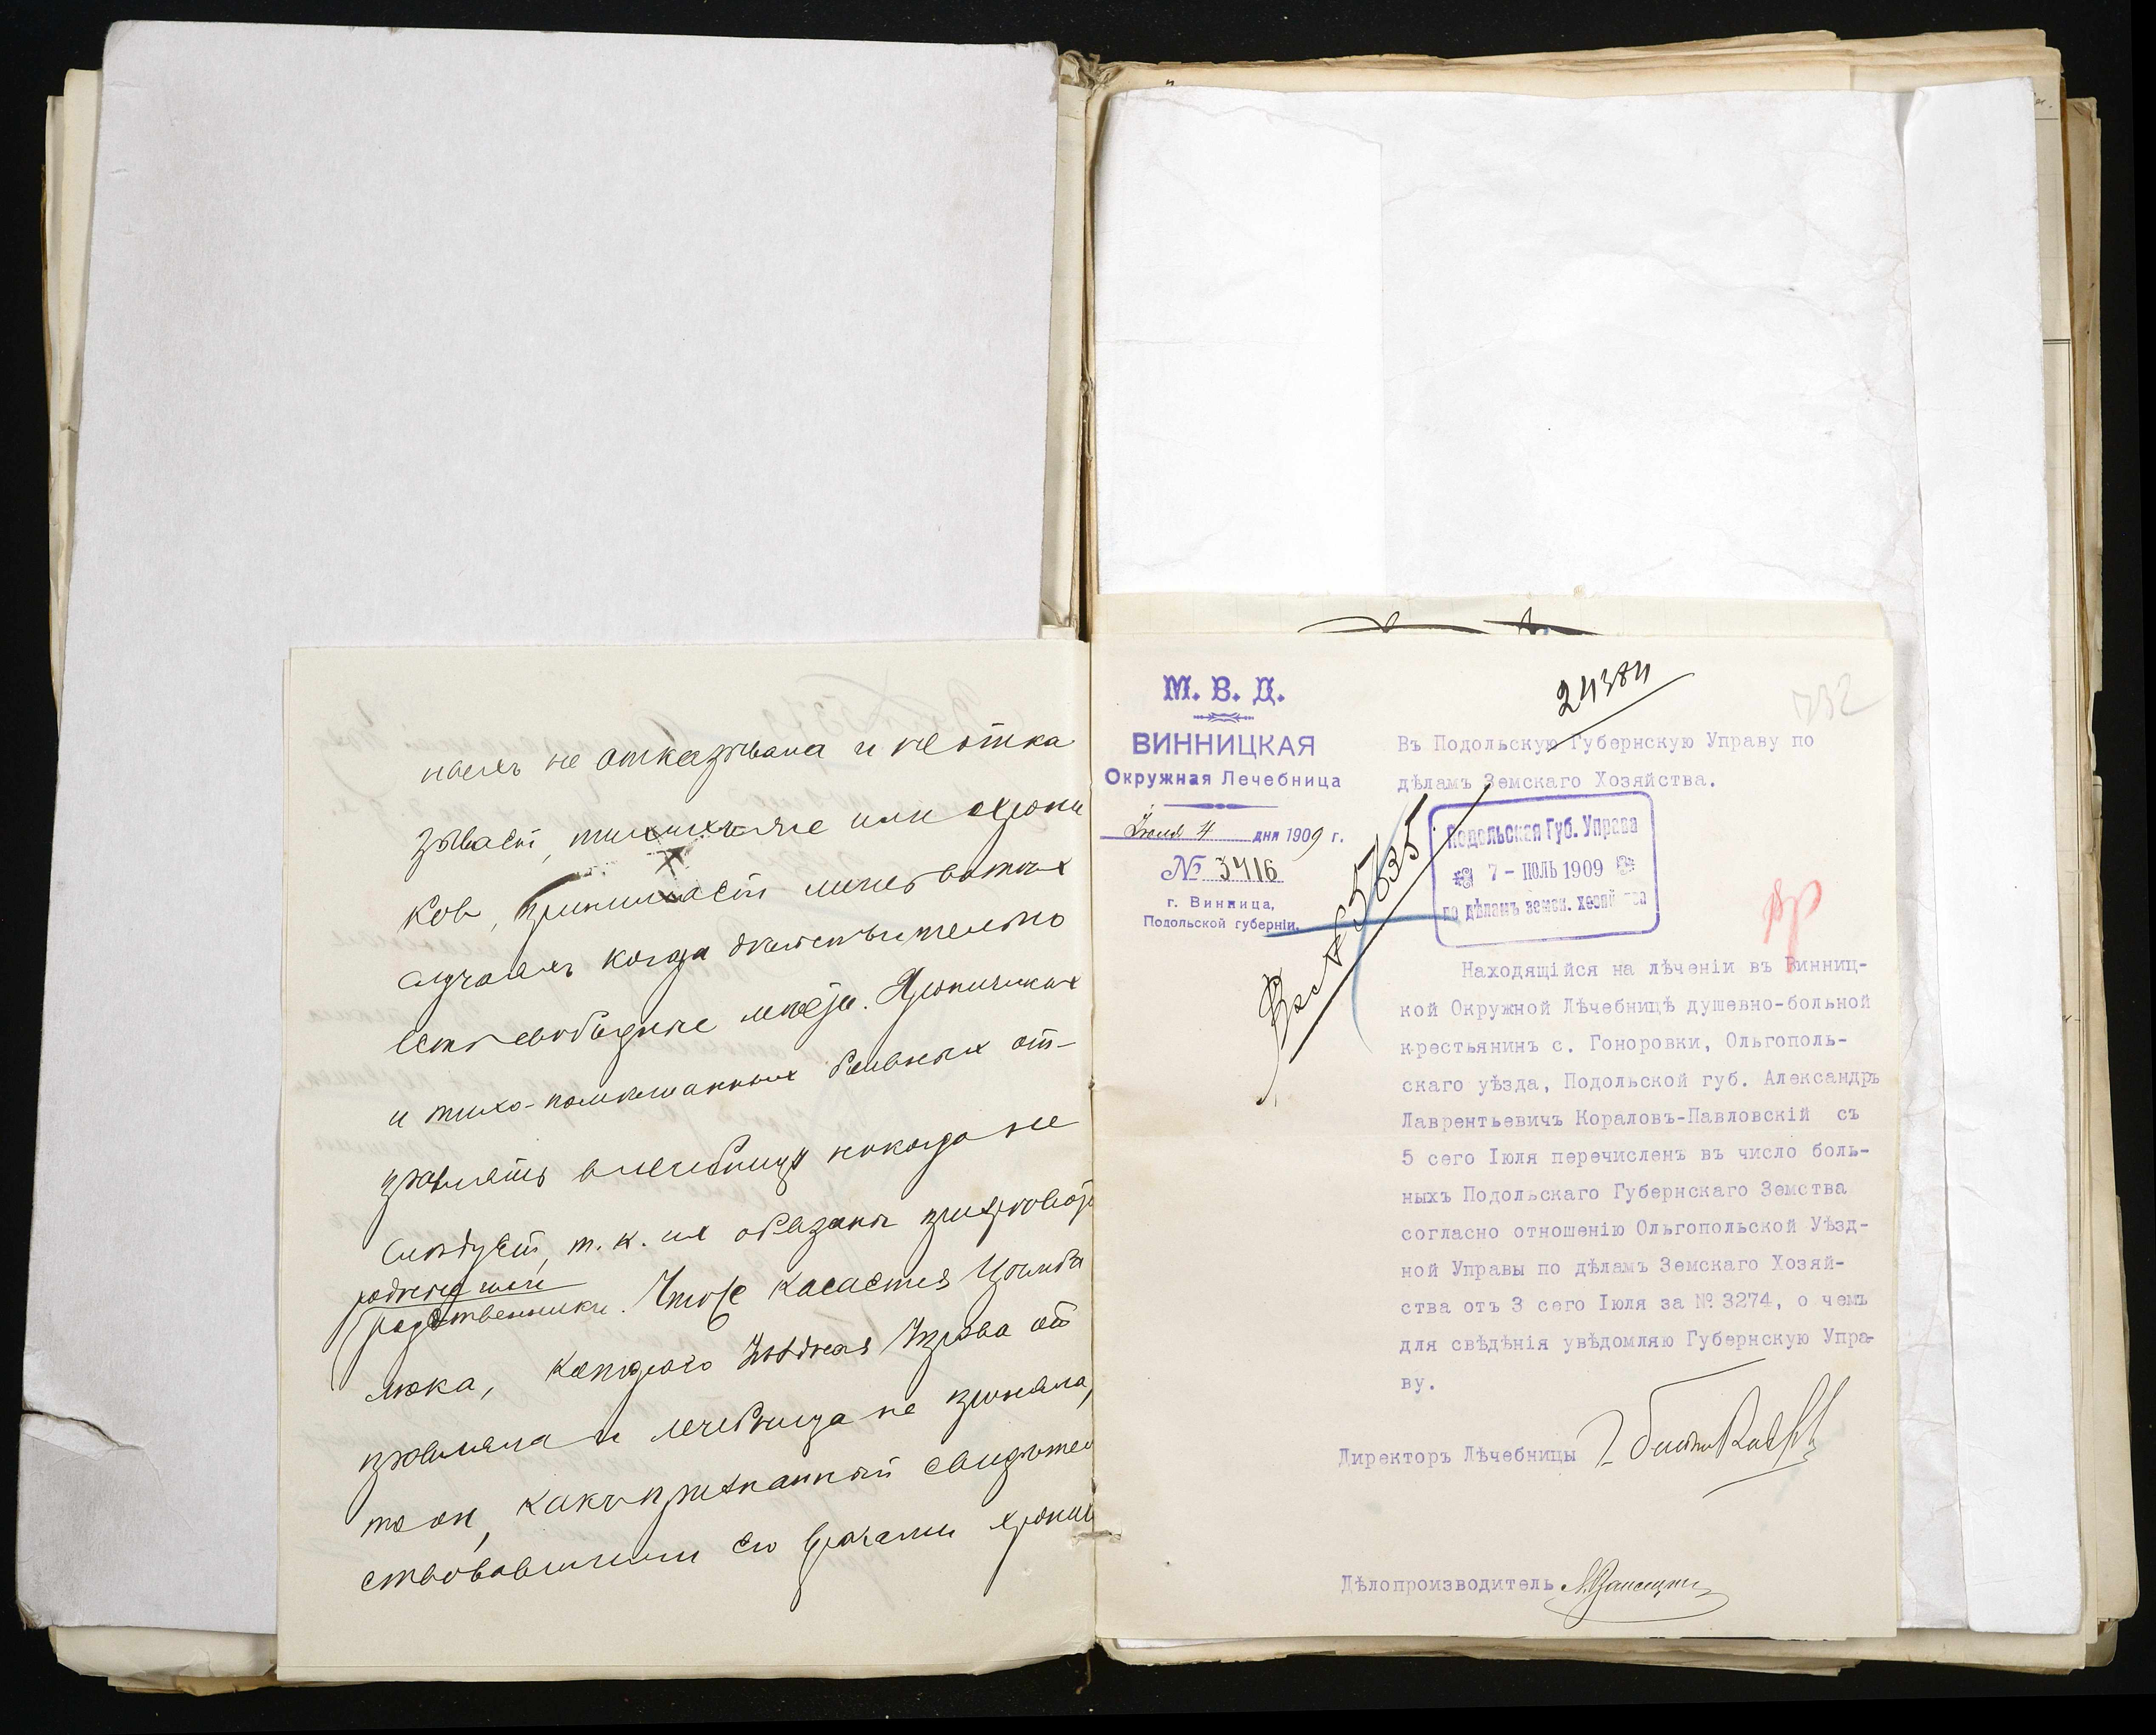 наихъ не отказывала и не отка
зываетъ, тихихъ же или хрони
ковъ, принимаетъ лишь въ тѣхъ
случаяхъ когда дѣйствительно
есть свободные мѣста. Хроническихъ
и тихо-помѣшанныхъ больныхъ от-
правлять в лечебницу никогда не
слѣдуетъ, т. к. их обязаны
родные или
родственники. Чтоже касается Цимба
люка, котораго Уѣздная Управа от
правляла и лечебница не приняла,
то он, какъ признанный свидѣтель
ствовавшими его врачами хрони
М. В. Д.
ВИННИЦКАЯ
Окружная Лечебница
Іюля 4 дня 1909 г.
№ 3416
г. Винница,
Подольской губерніи.
24384
732
Въ Подольскую Губернскую Управу по
дѣламъ Земскаго Хозяйства.
Подольская Губ. Управа
7 - ІЮЛЬ 1909
по дѣламъ земск. хозяйства
Вх. № 57635
Находящійся на лѣченіи въ Винниц-
кой Окружной Лѣчебницѣ душевно-больной
крестьянинъ с. Гоноровки, Ольгополь-
скаго уѣзда, Подольской губ. Александръ
Лаврентьевичъ Кораловъ-Павловскій съ
5 сего Іюля перечисленъ въ число боль-
ныхъ Подольскаго Губернскаго Земства
согласно отношенію Ольгопольской Уѣзд-
ной Управы по дѣламъ Земскаго Хозяй-
ства отъ 3 сего Іюля за № 3274, о чемъ
для свѣдѣнія увѣдомляю Губернскую Упра-
ву.
Директоръ Лѣчебницы
Дѣлопроизводитель